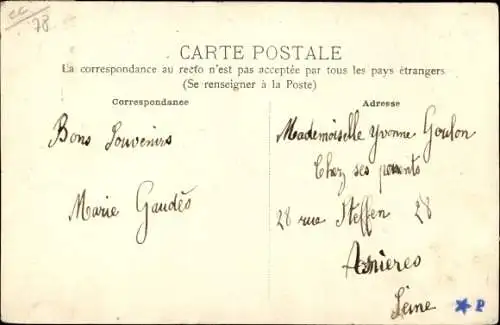 CC
78
CARTE POSTALE
La correspondance au recto n'est pas acceptée par tous les pays étrangers
(Se renseigner à la Poste)
Correspondance
Adresse
Bons Souvenirs
Marie Gaudès
Mademoiselle Yvonne Goulon
Chez ses parents
28 rue Steffen 28
Asnieres
Seine
★ P